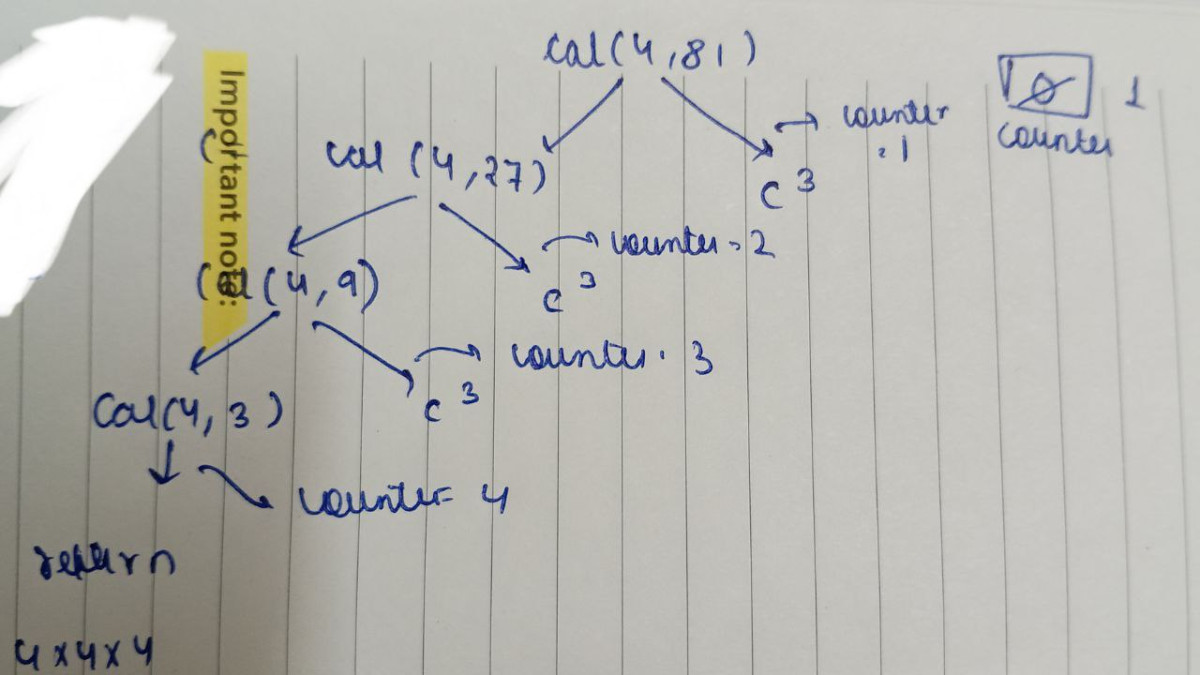 cal(4,81)
0 1
counter
counter
= 1
cal (4,27)
c 3
Important note:
counter = 2
cal(4,9)
c 3
counter = 3
c 3
Cal(4,3)
counter = 4
return
4x4x4